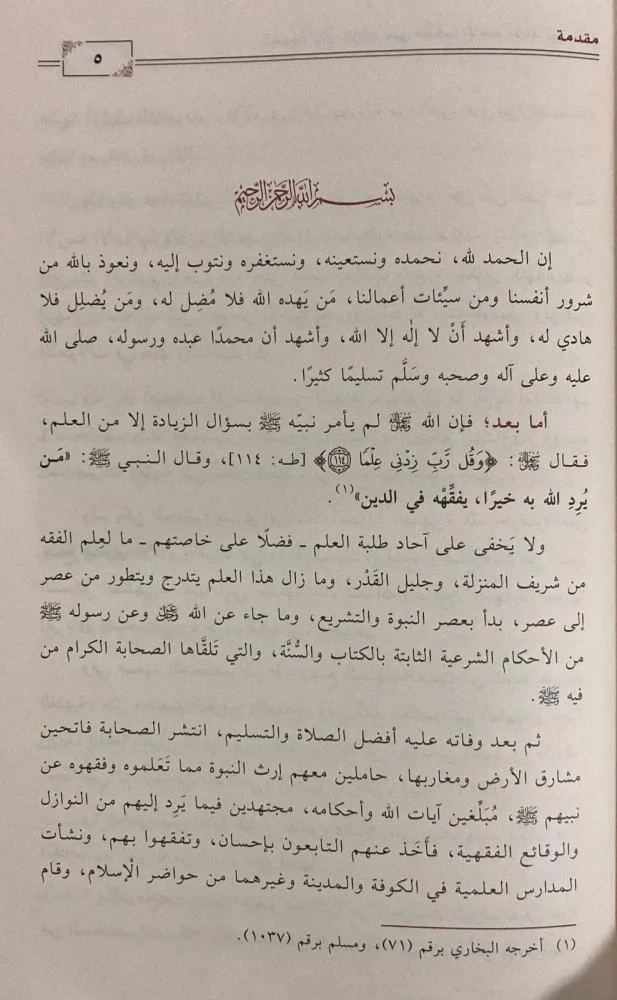 مقدمة
٥
بسم الله الرحمن الرحيم
إن الحمد لله، نحمده ونستعينه، ونستغفره ونتوب إليه، ونعوذ بالله من
شرور أنفسنا ومن سيِّئات أعمالنا، مَن يَهده الله فلا مُضِل له، ومَن يُضلِل فلا
هادي له، وأشهد أَنْ لا إلٰه إلا الله، وأشهد أن محمدًا عبده ورسوله، صلى الله
عليه وعلى آله وصحبه وسَلَّم تسليمًا كثيرًا.
أما بعد؛ فإن الله ﷻ لم يأمر نبيّه ﷺ بسؤال الزيادة إلا من العلم،
فقال ﷻ: ﴿وَقُل رَّبِّ زِدْنِي عِلْمًا ١١٤﴾ [طه: ١١٤]، وقال النبي ﷺ: «مَن
يُرِدِ الله به خيرًا، يفقِّهْه في الدين»(١).
ولا يَخفى على آحاد طلبة العلم ـ فضلًا على خاصتهم ـ ما لعِلم الفقه
من شريف المنزلة، وجليل القَدْر، وما زال هذا العلم يتدرج ويتطور من عصر
إلى عصر، بدأ بعصر النبوة والتشريع، وما جاء عن الله ﷿ وعن رسوله ﷺ
من الأحكام الشرعية الثابتة بالكتاب والسُّنَّة، والتي تَلقَّاها الصحابة الكرام من
فيه ﷺ.
ثم بعد وفاته عليه أفضل الصلاة والتسليم، انتشر الصحابة فاتحين
مشارق الأرض ومغاربها، حاملين معهم إرث النبوة مما تَعَلموه وفقهوه عن
نبيهم ﷺ، مُبَلِّغين آيات الله وأحكامه، مجتهدين فيما يَرِد إليهم من النوازل
والوقائع الفقهية، فأَخَذ عنهم التابعون بإحسان، وتفقهوا بهم، ونشأت
المدارس العلمية في الكوفة والمدينة وغيرهما من حواضر الْإسلام، وقام
(١) أخرجه البخاري برقم (٧١)، ومسلم برقم (١٠٣٧).